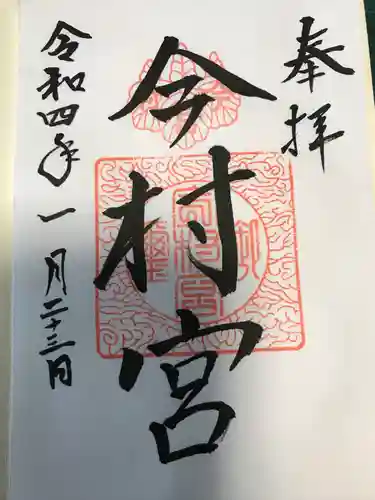 奉拝
今村宮
令和四年一月二十三日